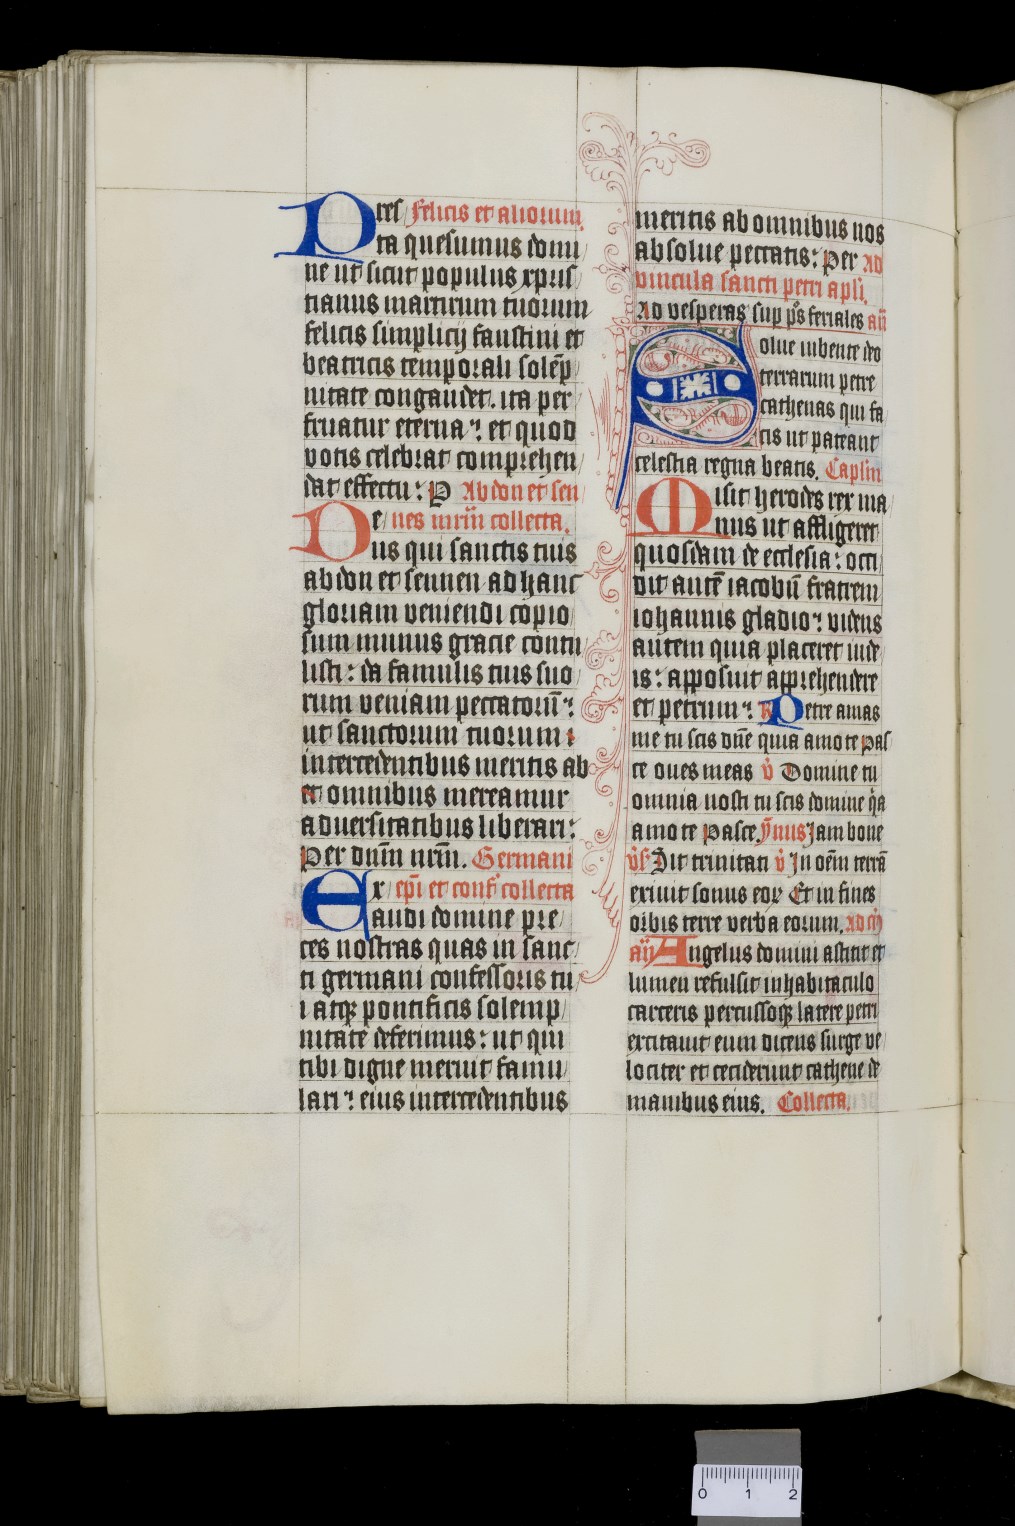 Pres felicis et aliorum.
ta quesumus domi
ne ut sicut populus xpris
tianus martirum tuorum
felicis simplicij faustini et
beatricis temporali solēp
nitate congaudet. ita per
fruatur eterna: et quod
votis celebrat comprehen
dat effectu: P Abdon et sen
De nes mrm̄ collecta.
us qui sanctis tuis
abdon et sennen ad hanc
gloriam veniendi copio
sum munus gracie contu
listi: da famulis tuis suo
rum veniam peccatoru᷑:
ut sanctorum tuorum i
intercedentibus meritis ab
et omnibus mereamur
adversitatibus liberari:
Per dnm̄ nrm̄. Germani
Ex epī et conf collecta
audi domine pre
ces nostras quas in sanc
ti germani confessoris tu
i atqꝫ pontificis solemp
nitate deferimus: ut qui
tibi digne meruit famu
lari: eius intercedentibus
meritis ab omnibus nos
absolue peccatis: Per Ad
vincula sancti petri apli.
Ad vesperas sup ps̄ feriales an̄
Solue iubente deo
terrarum petre
cathenas qui fa
cis ut pateant
celestia regna beatis. Caplm
Misit herodes rex ma
nus ut affligeret
quosdam de ecclesia: occi
dit autē iacobū fratrem
iohannis gladio: videns
autem quia placeret iude
is: apposuit apprehendere
et petrum: R Petre amas
me tu scis dn̄e quia amo te Pas
ce oues meas v̄ Domine tu
omnia nosti tu scis domine q̄a
amo te Pasce ymnus Jam bone
vs̄ Sit trinitati v̄ In oēm terrā
exiuit sonus eoꝝ Et in fines
orbis terre verba eorum. Ad m̄
an̄ Angelus domini astitit et
lumen refulsit in habitaculo
carceris percussoqꝫ latere petri
excitauit eum dicens surge ve
lociter et ceciderunt cathene de
manibus eius. Collecta.
0 1 2